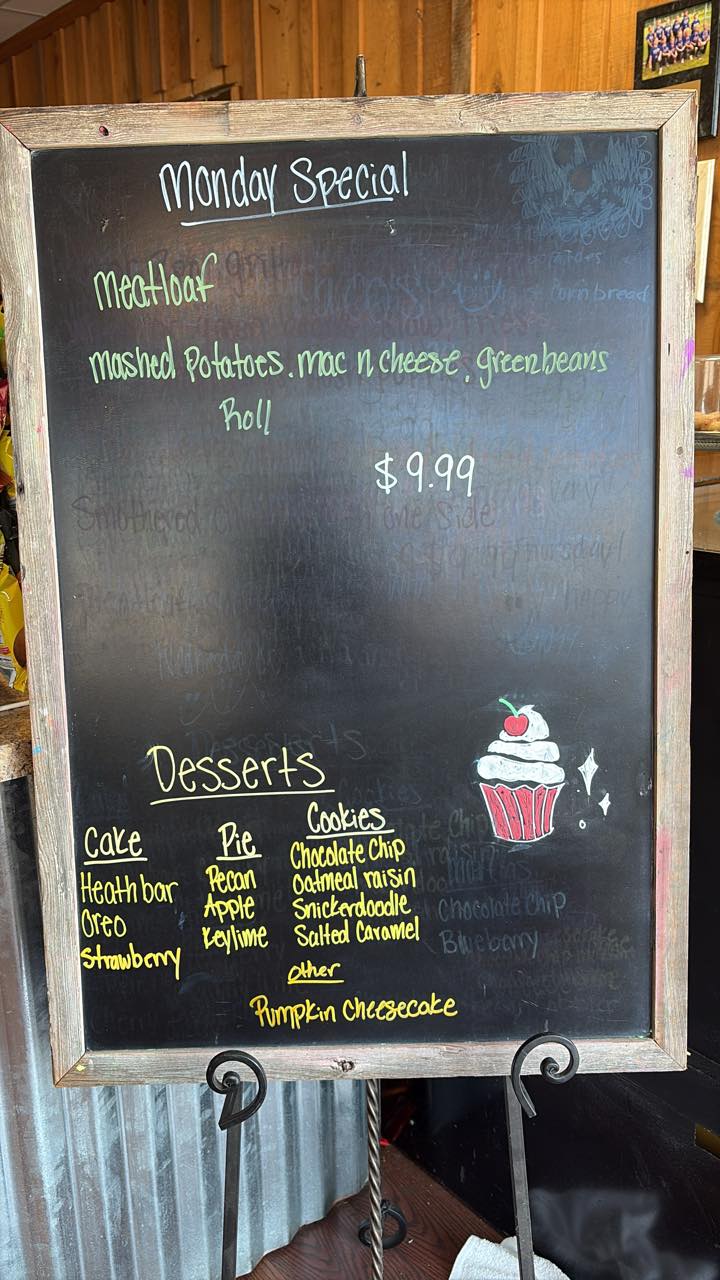 Monday Special
meatloaf
mashed Potatoes. mac n cheese. greenbeans
Roll
$9.99
Smothered one Side
Desserts
Cake Pie Cookies
Heath bar Pecan Chocolate Chip
Oreo Apple Oatmeal raisin
Strawberry Keylime Snickerdoodle
Salted Caramel
Chocolate Chip
Blueberry
other
Pumpkin Cheesecake